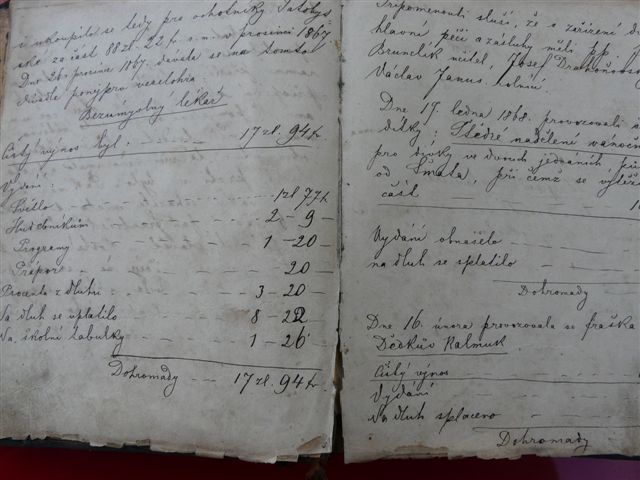 i ukoupilo se tedy pro ochotníky
za část 88 zl. 22 k. r. m. v prosinci 1867
Dne 26. prosince 1867. dávala se na tomto
divadle ponejprv veselohra
Bezúmyslný lékař
Čistý výnos byl: 17 zl. 94 k
Vydání:
Světlo 1 zl 77 k
Hudebníkům 2 - 9 -
Programy 1 - 20 -
Prápor 20 -
Procenta z dluhu 3 - 20 -
Na dluh se splatilo 8 - 22 -
Na školní tabulky 1 - 26
Dohromady 17 zl. 94 k
Připomenouti sluší, že o zařízení
hlavní péči a zásluhy měli pp.
Brunclík učitel, Josef
Václav Janus rolní.
Dne 17. ledna 1868. provozovali
dítky: Štědré nadělení vánoční
pro dívky ve dvouch jednáních
od Šmata, při čemž se
část
Vydání obnášelo
na dluh se splatilo
Dohromady
Dne 16. února provozovala se fraška
Dědkův Kalmuk.
Čistý výnos
Vydání
Na dluh splaceno
Dohromady